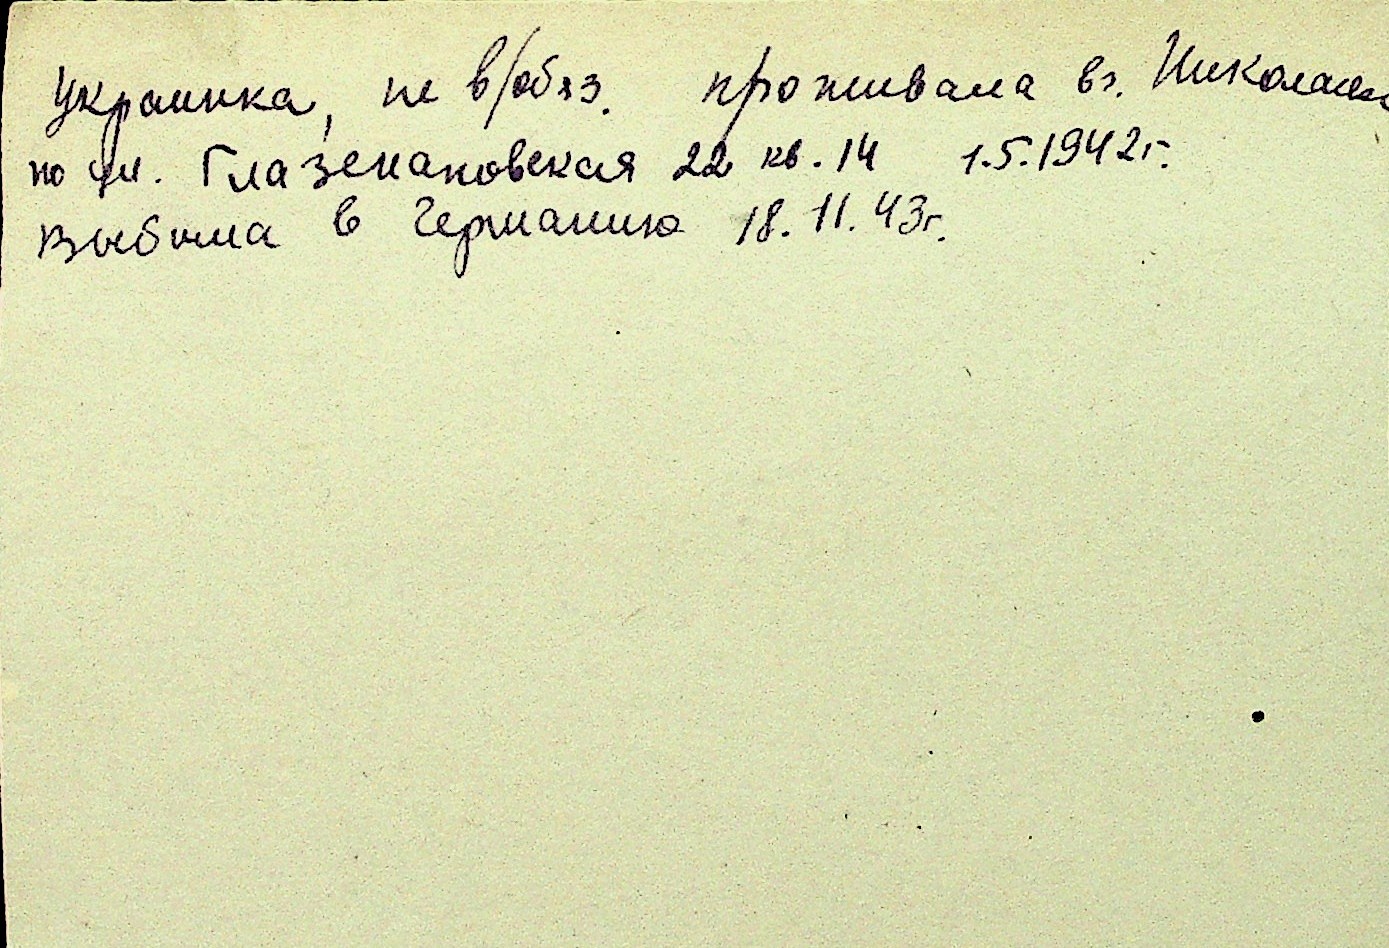 Украинка, не в/обяз. проживала в г. Николаев
по ул. Глазенаповская 22 кв. 14 1.5.1942г.
выбыла в Германию 18.11.43г.